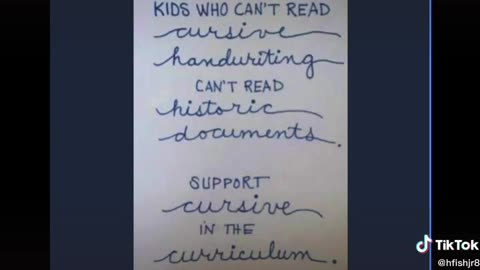 KIDS WHO CAN'T READ
cursive
handwriting
CAN'T READ
historic
documents.
SUPPORT
cursive
IN THE
curriculum.
TikTok
@hfishjr8